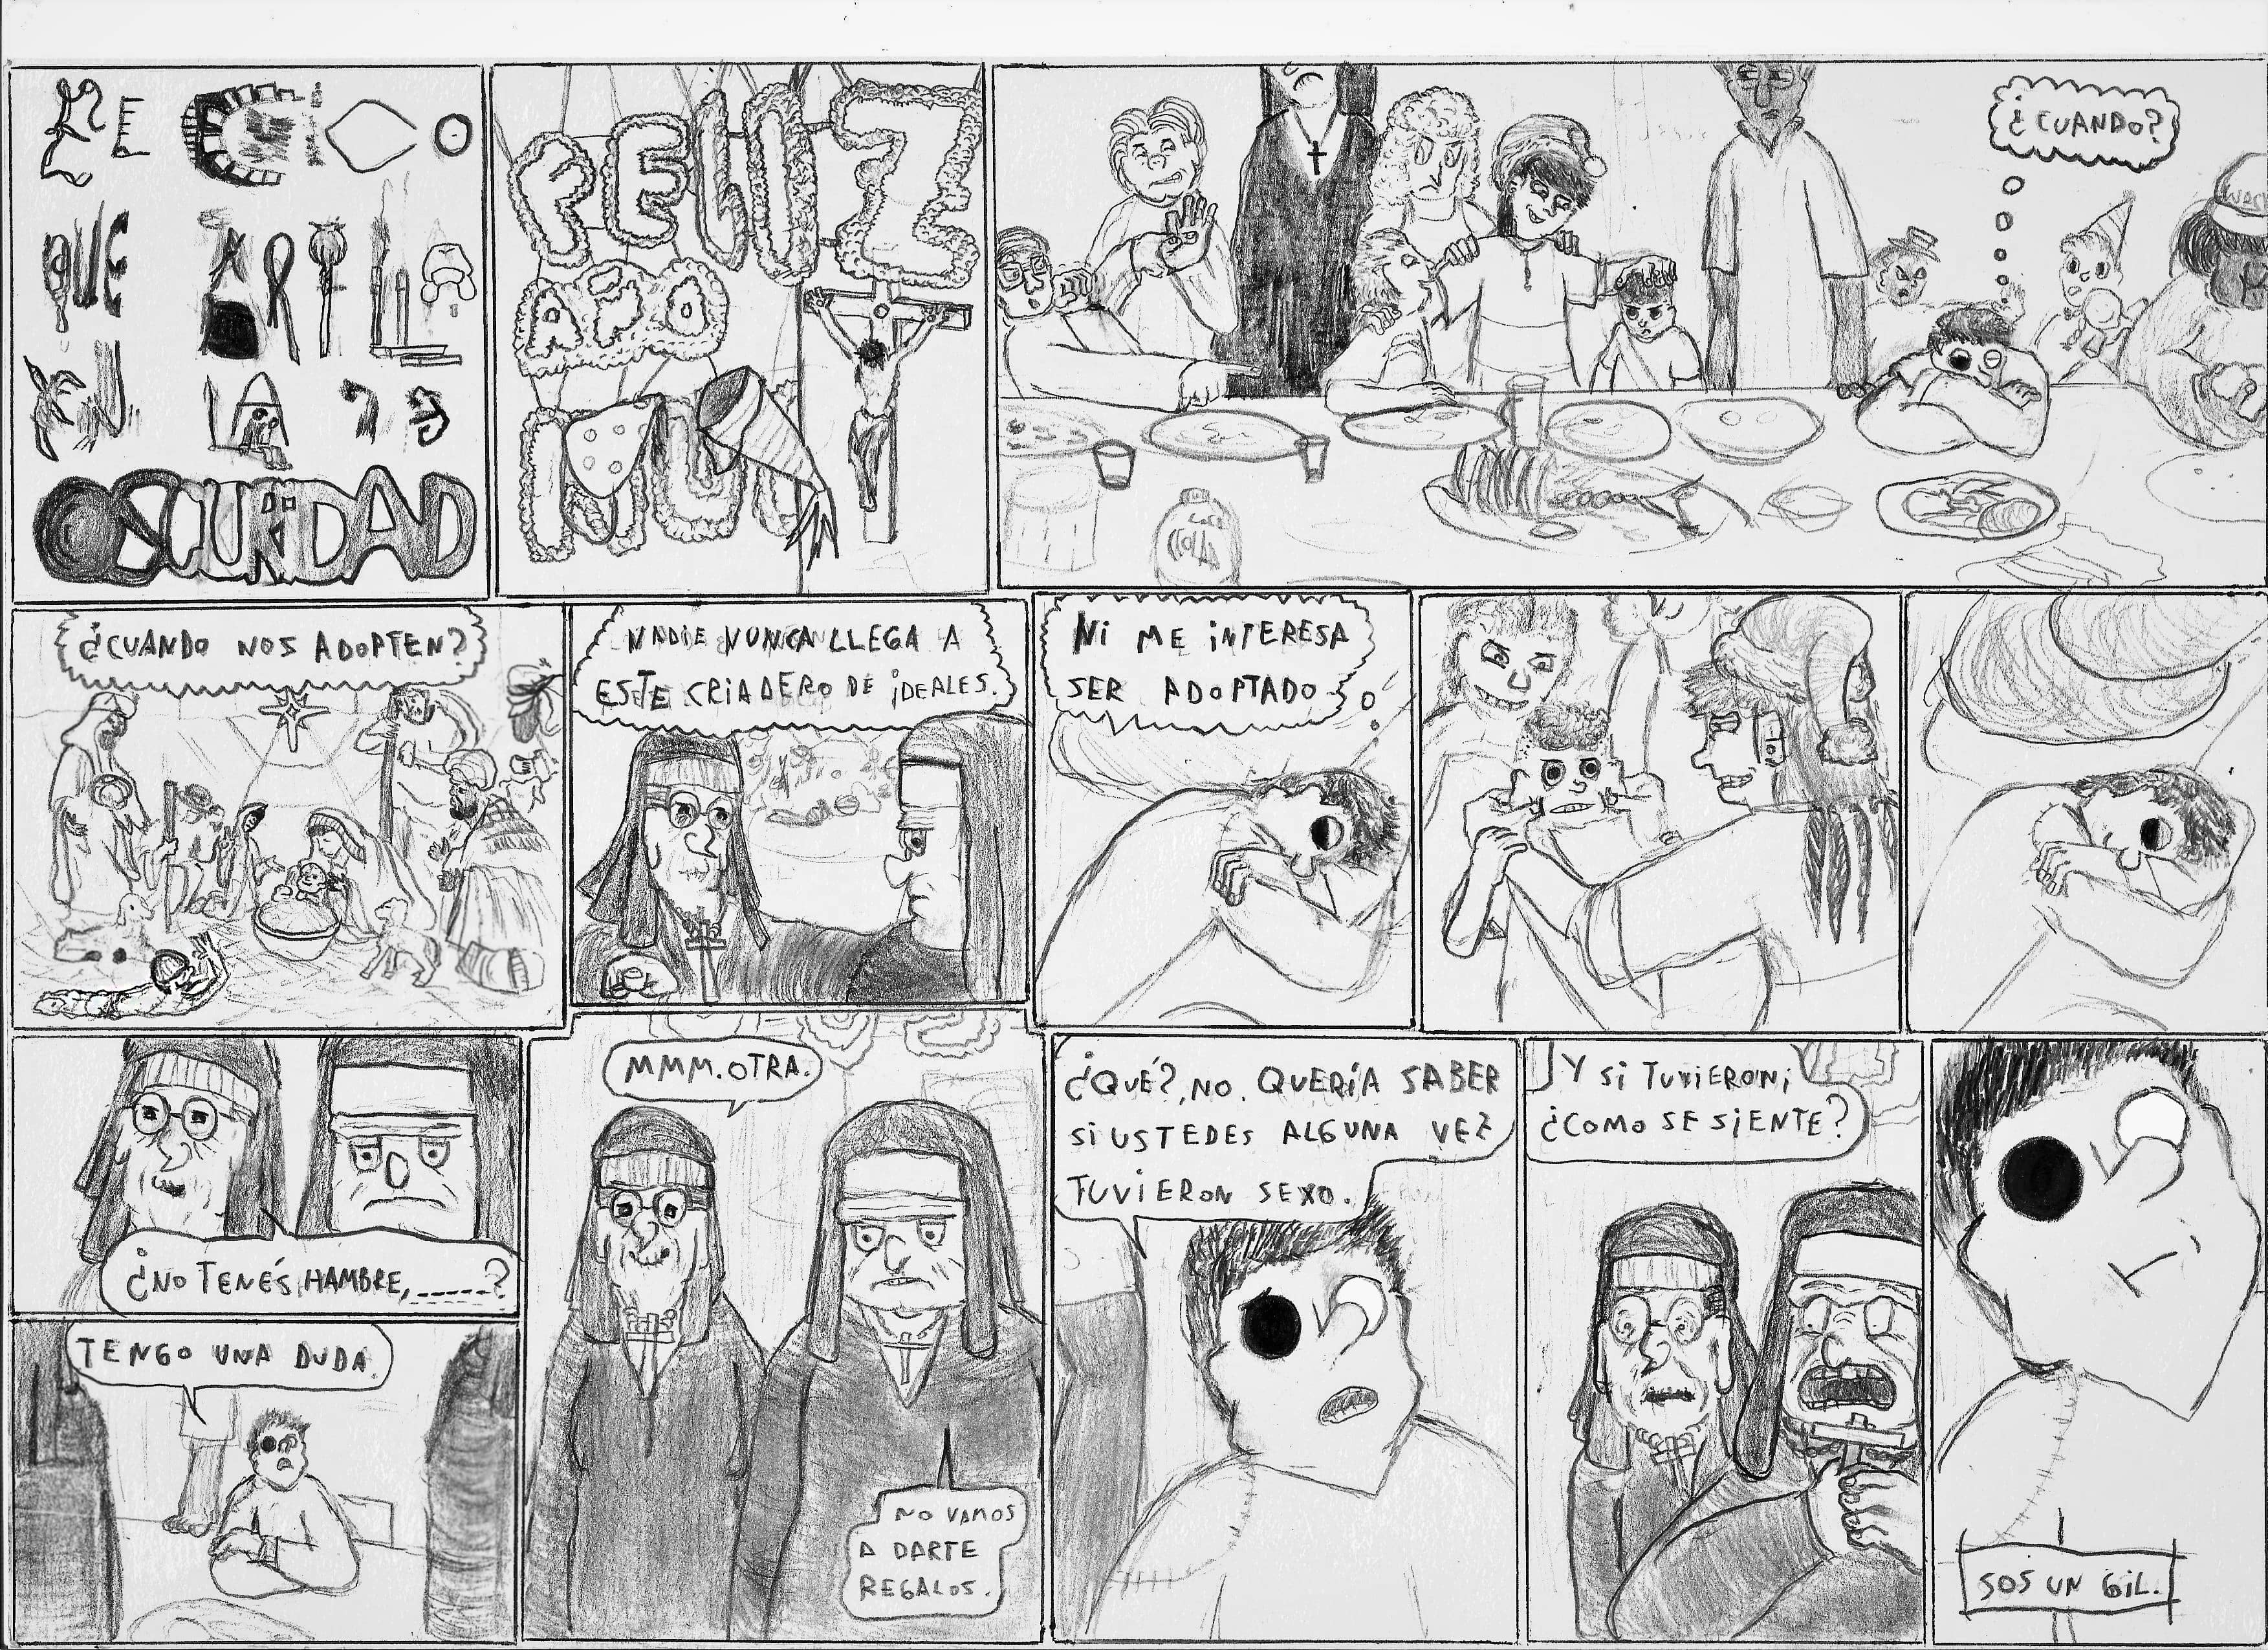 QUE
LA
OSCURIDAD
FELIZ
¿CUANDO?
COCA
¿CUANDO NOS ADOPTEN?
NADIE NUNCA LLEGA A
ESTE CRIADERO DE IDEALES.
NI ME INTERESA
SER ADOPTADO
¿NO TENÉS HAMBRE, ------?
TENGO UNA DUDA.
MMM. OTRA.
NO VAMOS
A DARTE
REGALOS.
¿QUÉ?, NO. QUERÍA SABER
SI USTEDES ALGUNA VEZ
TUVIERON SEXO.
Y SI TUVIERON,
¿COMO SE SIENTE?
SOS UN GIL.